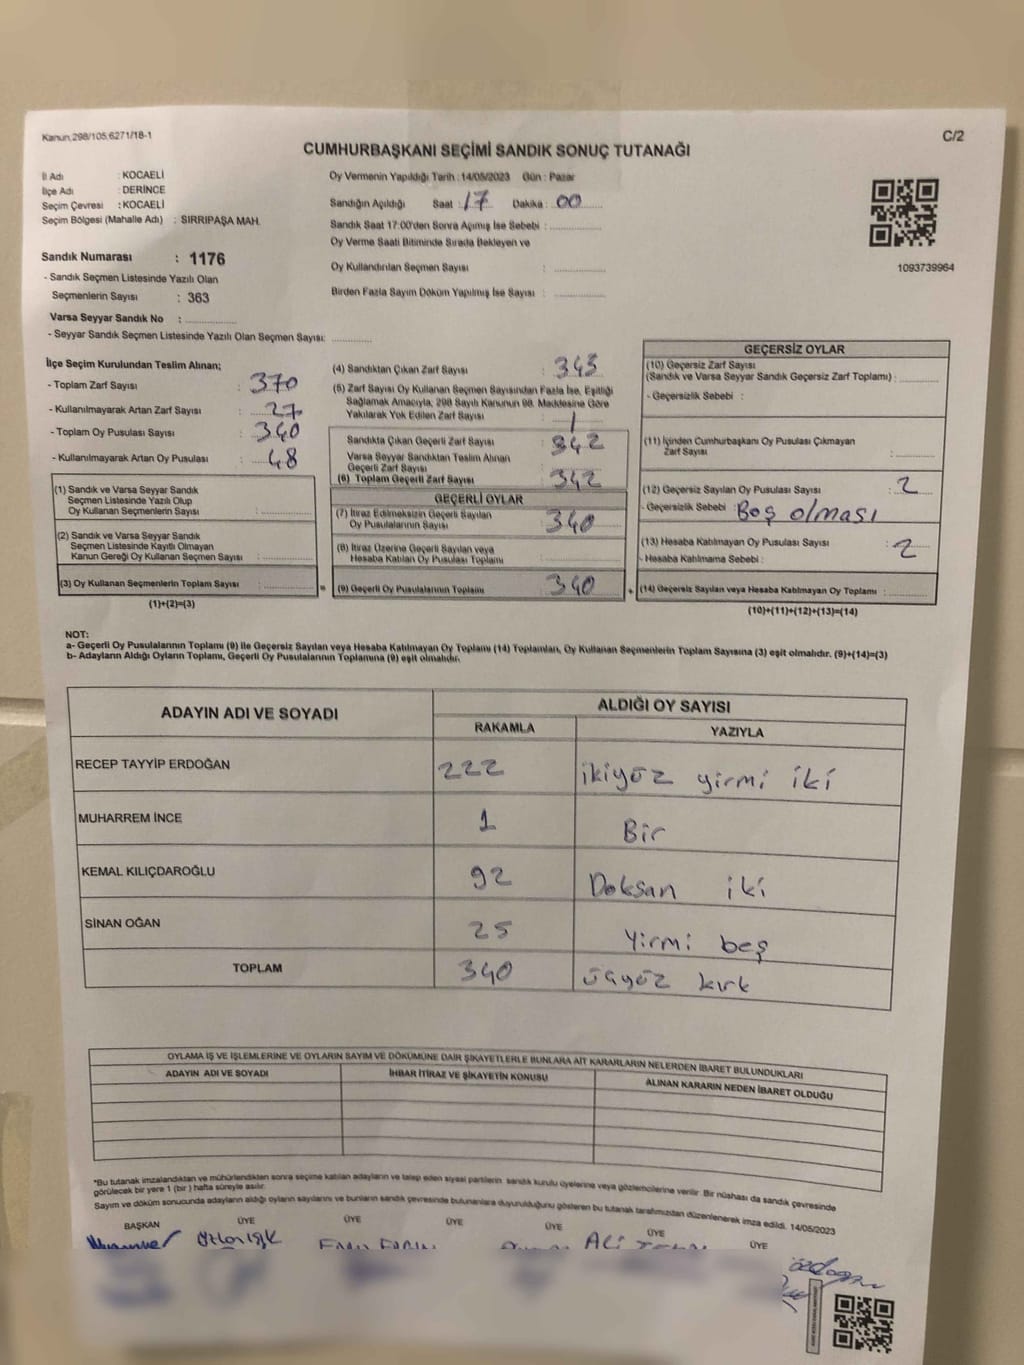 Kanun,298/105,6271/18-1
C/2
CUMHURBAŞKANI SEÇİMİ SANDIK SONUÇ TUTANAĞI
İl Adı : KOCAELİ
İlçe Adı : DERİNCE
Seçim Çevresi : KOCAELİ
Seçim Bölgesi (Mahalle Adı) : SIRRIPAŞA MAH.
Sandık Numarası : 1176
- Sandık Seçmen Listesinde Yazılı Olan
Seçmenlerin Sayısı : 363
Varsa Seyyar Sandık No :
- Seyyar Sandık Seçmen Listesinde Yazılı Olan Seçmen Sayısı:
Oy Vermenin Yapıldığı Tarih : 14/05/2023 Gün : Pazar
Sandığın Açıldığı Saat : 17 Dakika : 00
Sandık Saat 17:00'den Sonra Açımış İse Sebebi :
Oy Verme Saati Bitiminde Sırada Bekleyen ve
Oy Kullandırılan Seçmen Sayısı :
Birden Fazla Sayım Döküm Yapılmış İse Sayısı :
1093739964
İlçe Seçim Kurulundan Teslim Alınan;
- Toplam Zarf Sayısı : 370
- Kullanılmayarak Artan Zarf Sayısı : 27
- Toplam Oy Pusulası Sayısı : 340
- Kullanılmayarak Artan Oy Pusulası : 48
(1) Sandık ve Varsa Seyyar Sandık
Seçmen Listesinde Yazılı Olup
Oy Kullanan Seçmenlerin Sayısı :
(2) Sandık ve Varsa Seyyar Sandık
Seçmen Listesinde Kayıtlı Olmayan
Kanun Gereği Oy Kullanan Seçmen Sayısı :
(3) Oy Kullanan Seçmenlerin Toplam Sayısı :
(1)+(2)=(3)
(4) Sandıktan Çıkan Zarf Sayısı : 343
(5) Zarf Sayısı Oy Kullanan Seçmen Sayısından Fazla İse, Eşitliği
Sağlamak Amacıyla, 298 Sayılı Kanunun 98. Maddesine Göre
Yakılarak Yok Edilen Zarf Sayısı : 1
Sandıkta Çıkan Geçerli Zarf Sayısı : 342
Varsa Seyyar Sandıktan Teslim Alınan
Geçerli Zarf Sayısı :
(6) Toplam Geçerli Zarf Sayısı : 342
GEÇERLİ OYLAR
(7) İtiraz Edilmeksizin Geçerli Sayılan
Oy Pusulalarının Sayısı : 340
(8) İtiraz Üzerine Geçerli Sayılan veya
Hesaba Katılan Oy Pusulası Toplamı :
(9) Geçerli Oy Pusulalarının Toplamı : 340
GEÇERSİZ OYLAR
(10) Geçersiz Zarf Sayısı
(Sandık ve Varsa Seyyar Sandık Geçersiz Zarf Toplamı) :
- Geçersizlik Sebebi :
(11) İçinden Cumhurbaşkanı Oy Pusulası Çıkmayan
Zarf Sayısı :
(12) Geçersiz Sayılan Oy Pusulası Sayısı : 2
- Geçersizlik Sebebi : Boş olması
(13) Hesaba Katılmayan Oy Pusulası Sayısı : 2
- Hesaba Katılmama Sebebi :
(14) Geçersiz Sayılan veya Hesaba Katılmayan Oy Toplamı :
(10)+(11)+(12)+(13)=(14)
NOT:
a- Geçerli Oy Pusulalarının Toplamı (9) ile Geçersiz Sayılan veya Hesaba Katılmayan Oy Toplamı (14) Toplamları, Oy Kullanan Seçmenlerin Toplam Sayısına (3) eşit olmalıdır. (9)+(14)=(3)
b- Adayların Aldığı Oyların Toplamı, Geçerli Oy Pusulalarının Toplamına (9) eşit olmalıdır.
ADAYIN ADI VE SOYADI
ALDIĞI OY SAYISI
RAKAMLA YAZIYLA
RECEP TAYYİP ERDOĞAN 222 ikiyüz yirmi iki
MUHARREM İNCE 1 Bir
KEMAL KILIÇDAROĞLU 92 Doksan iki
SİNAN OĞAN 25 Yirmi beş
TOPLAM 340 üçyüz kırk
OYLAMA İŞ VE İŞLEMLERİNE VE OYLARIN SAYIM VE DÖKÜMÜNE DAİR ŞİKAYETLERLE BUNLARA AİT KARARLARIN NELERDEN İBARET BULUNDUKLARI
ADAYIN ADI VE SOYADI İHBAR İTİRAZ VE ŞİKAYETİN KONUSU ALINAN KARARIN NEDEN İBARET OLDUĞU
*Bu tutanak imzalandıktan ve mühürlendikten sonra seçime katılan adayların ve talep eden siyasi partilerin sandık kurulu üyelerine veya gözlemcilerine verilir. Bir nüshası da sandık çevresinde
görülecek bir yere 1 (bir) hafta süreyle asılır.
Sayım ve döküm sonucunda adayların aldığı oyların sayılarını ve bunların sandık çevresinde bulunanlara duyurulduğunu gösteren bu tutanak tarafımızdan düzenlenerek imza edildi. 14/05/2023
BAŞKAN ÜYE ÜYE ÜYE ÜYE ÜYE ÜYE